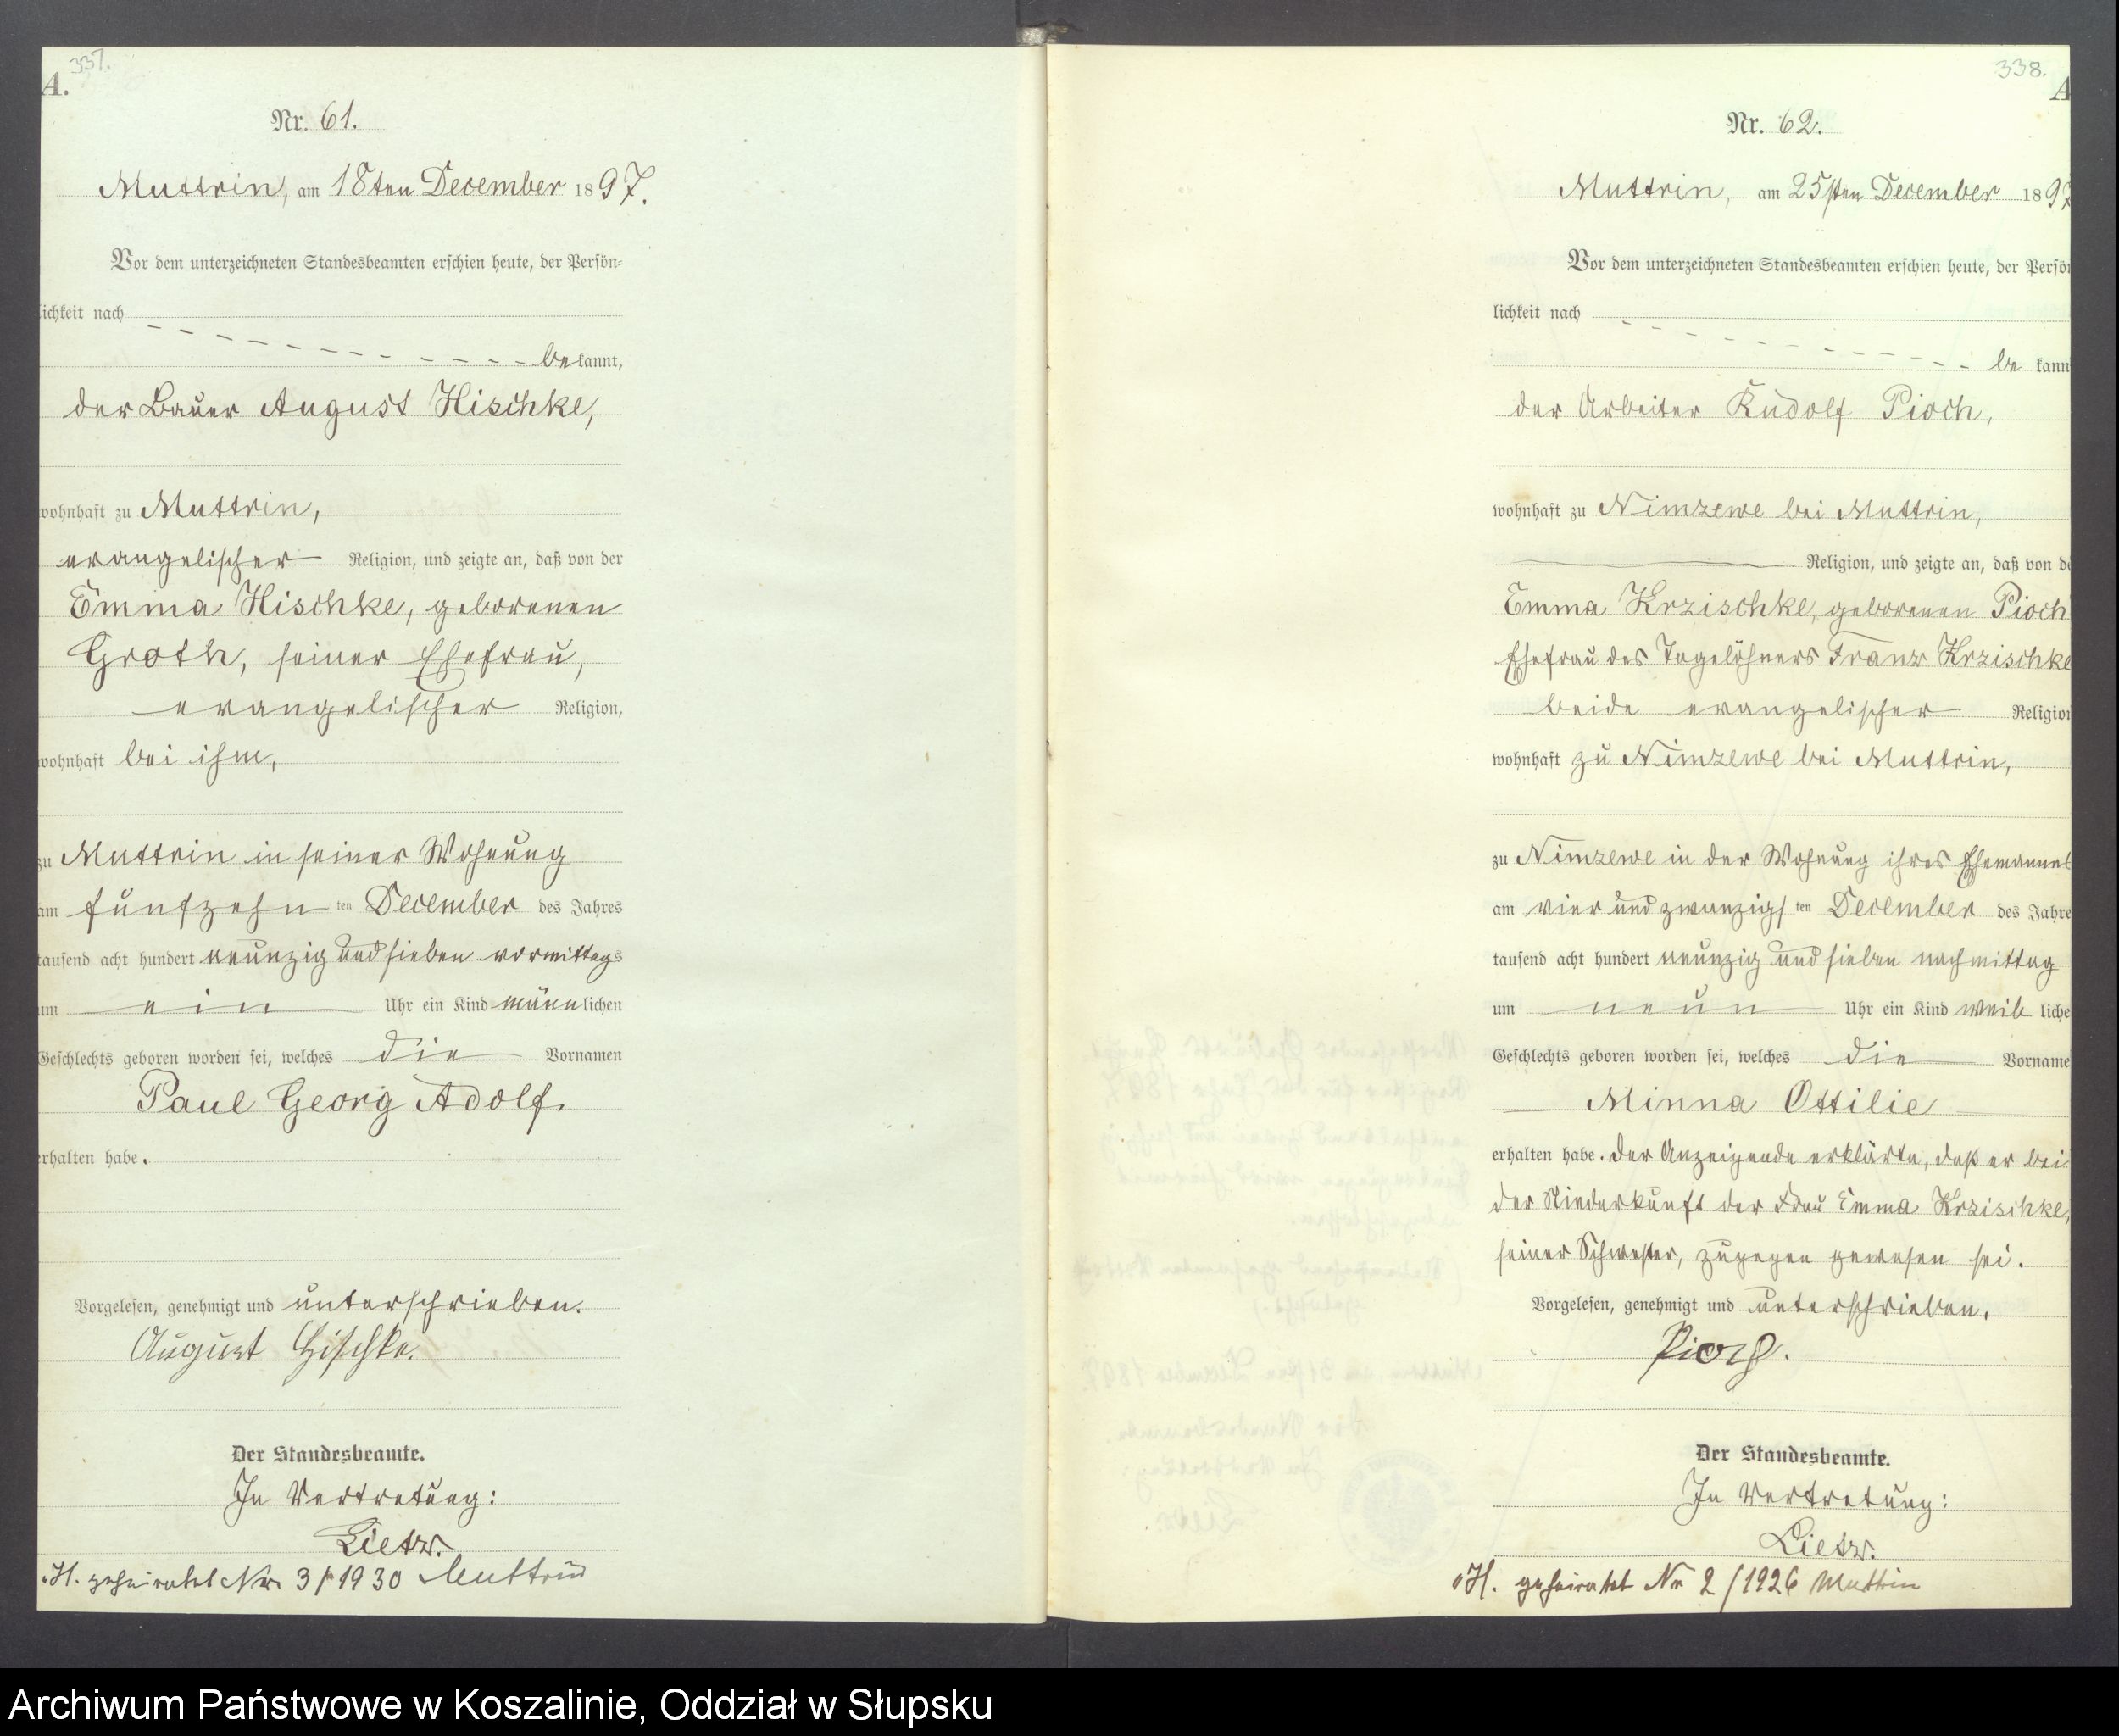 337.
A.
Nr. 61.
Muttrin, am 18ten December 1897.
Vor dem unterzeichneten Standesbeamten erschien heute, der Persön=
lichkeit nach
bekannt,
der Bauer August Hischke,
wohnhaft zu Muttrin,
evangelischer Religion, und zeigte an, daß von der
Emma Hischke, geborenen
Groth, seiner Ehefrau,
evangelischer Religion,
wohnhaft bei ihm,
zu Muttrin in seiner Wohnung
am fünfzehn ten December des Jahres
tausend acht hundert neunzig und sieben vormittags
um ein Uhr ein Kind männlichen
Geschlechts geboren worden sei, welches die Vornamen
Paul Georg Adolf.
erhalten habe.
Vorgelesen, genehmigt und unterschrieben.
August Hischke.
Der Standesbeamte.
In Vertretung:
Lietz.
H. geheiratet Nr. 3/1930 Muttrin
338.
A
Nr. 62.
Muttrin, am 25sten December 1897
Vor dem unterzeichneten Standesbeamten erschien heute, der Persön
lichkeit nach
be kann
der Arbeiter Rudolf Pioch,
wohnhaft zu Nimzewe bei Muttrin,
Religion, und zeigte an, daß von de
Emma Krzischke, geborenen Pioch
Ehefrau des Tagelöhners Franz Krzischke
beide evangelischer Religion
wohnhaft zu Nimzewe bei Muttrin,
zu Nimzewe in der Wohnung ihres Ehemannes
am vier und zwanzigs ten December des Jahre
tausend acht hundert neunzig und sieben nachmittag
um neun Uhr ein Kind weib liche
Geschlechts geboren worden sei, welches die Vorname
Minna Ottilie
erhalten habe. Der Anzeigende erklärte, daß er bei
der Niederkunft der Frau Emma Krzischke,
seiner Schwester, zugegen gewesen sei.
Vorgelesen, genehmigt und unterschrieben.
Pioch.
Der Standesbeamte.
In Vertretung:
Lietz.
H. geheiratet Nr 2/1926 Muttrin
Archiwum Państwowe w Koszalinie, Oddział w Słupsku